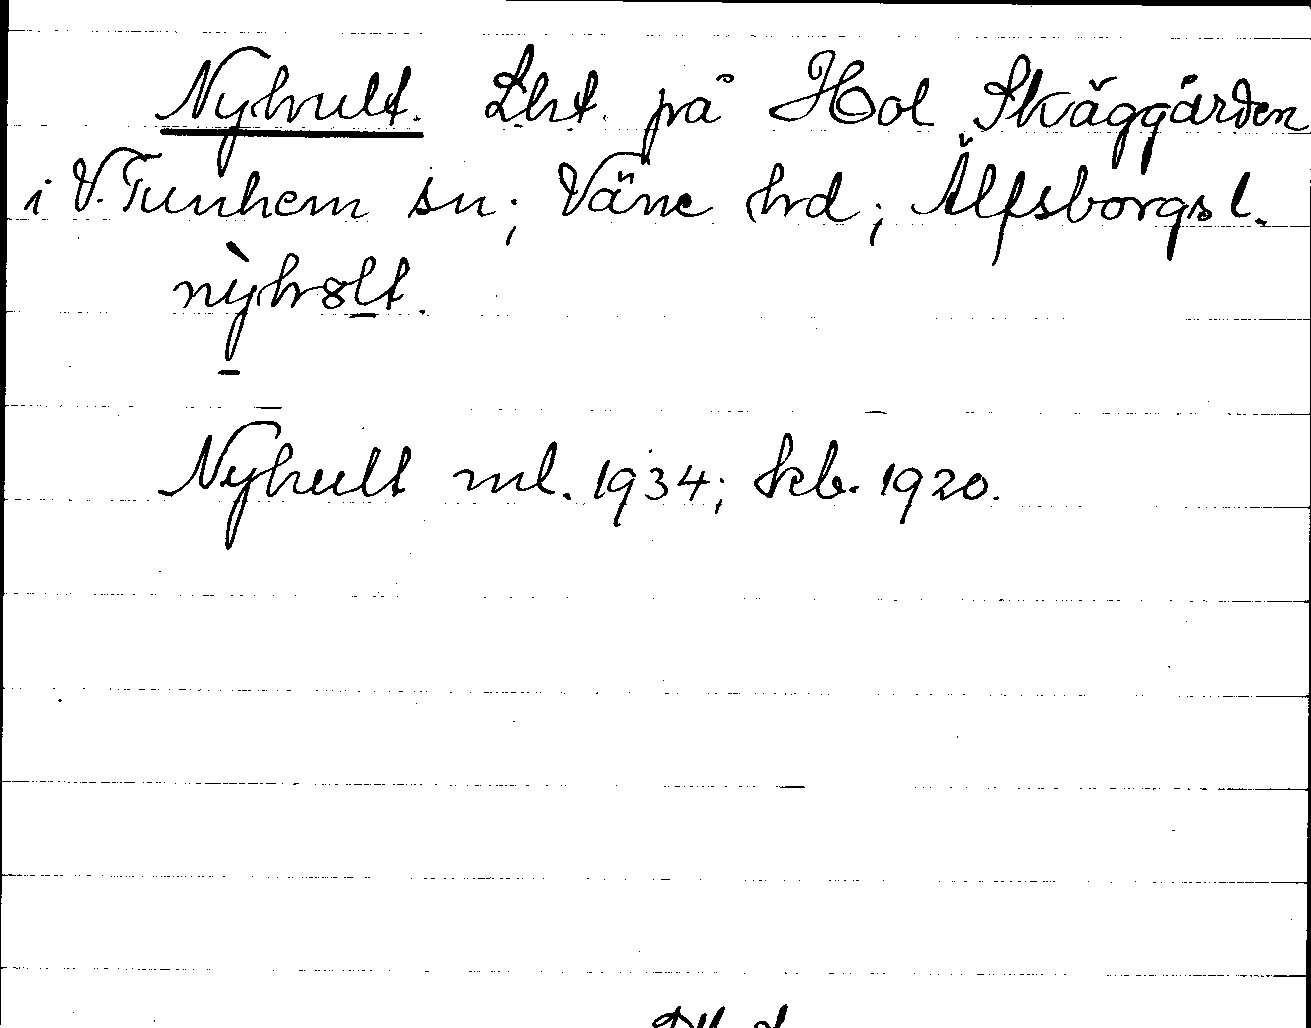 Nyhult. Lht. på Hol Skäggården
i V. Tunhem sn; Väne hrd; Älfsborgs l.
nỳhɞlt.
Nyhult ml. 1934; skb. 1920.